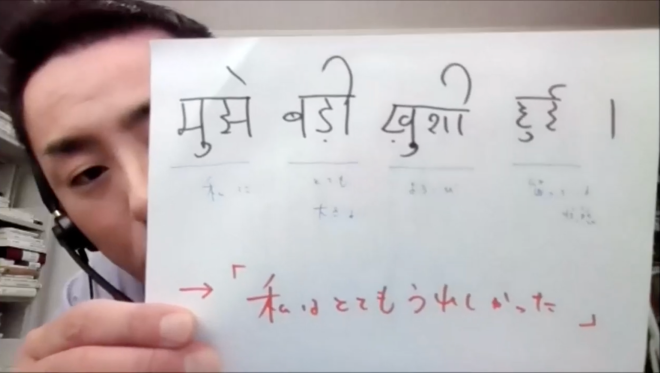 मुझे बड़ी ख़ुशी हुई ।
私に
大きな
→「私はとてもうれしかった」